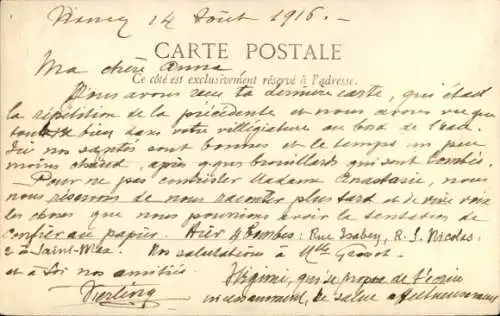 Nancy 14 Août 1916. -
CARTE POSTALE
Ce côté est exclusivement réservé à l'adresse.
Ma chère Anna
Nous avons reçu ta dernière carte, qui était
la répétition de la précédente et nous avons vu que
tout bien dans votre villégiature au bord de l'eau.
Ici nos santés sont bonnes et le temps un peu
moins chaud, après qques brouillards qui sont tombés.
Pour ne pas contrister Madame Anastasie, nous
nous réservons de nous raconter plus tard et de vive voix
les choses que nous pourrions avoir la tentation de
confier au papier. Hier 4 bombes : Rue Isabey, R. S. Nicolas,
2 à Saint-Max. Nos salutations à Mlle
et à toi nos amitiés.
Virginie, qui se propose de t'écrire
incessamment, te salue
Vierling